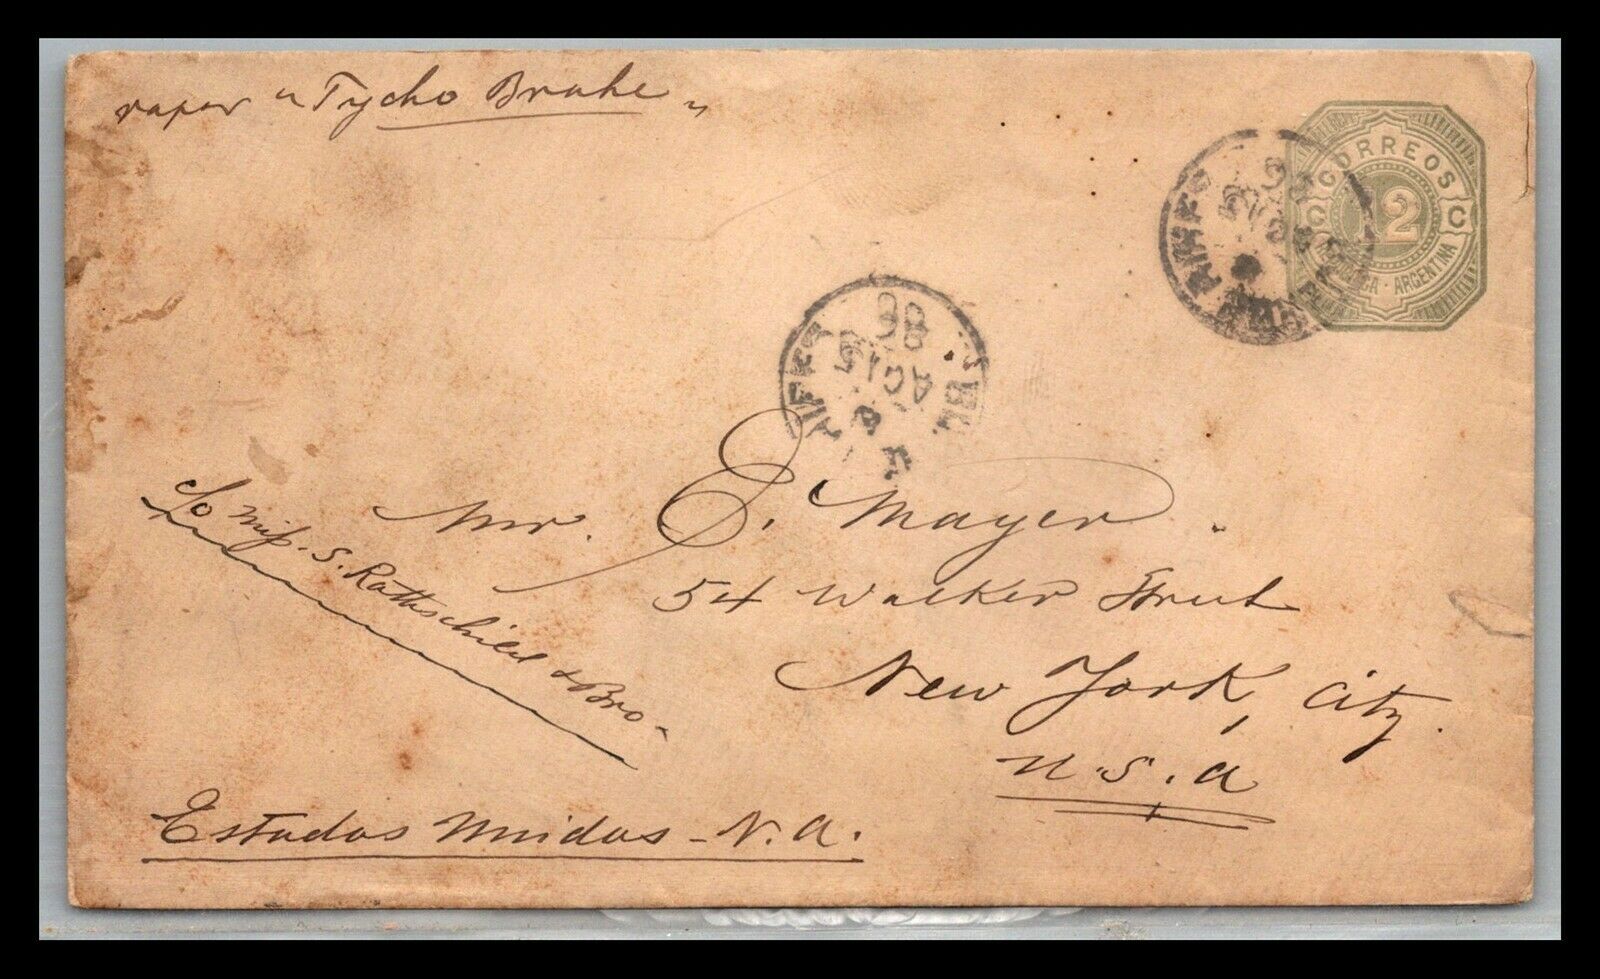 vapor "Tycho Brahe"
CORREOS
C 12 C
REPUBLICA · ARGENTINA
88
AG 15
Mr. E. Mayer.
c/o Miss. S. Rothschild & Bro-
54 Walker Street
New York, City.
U.S.A
Estados Unidos - N. A.